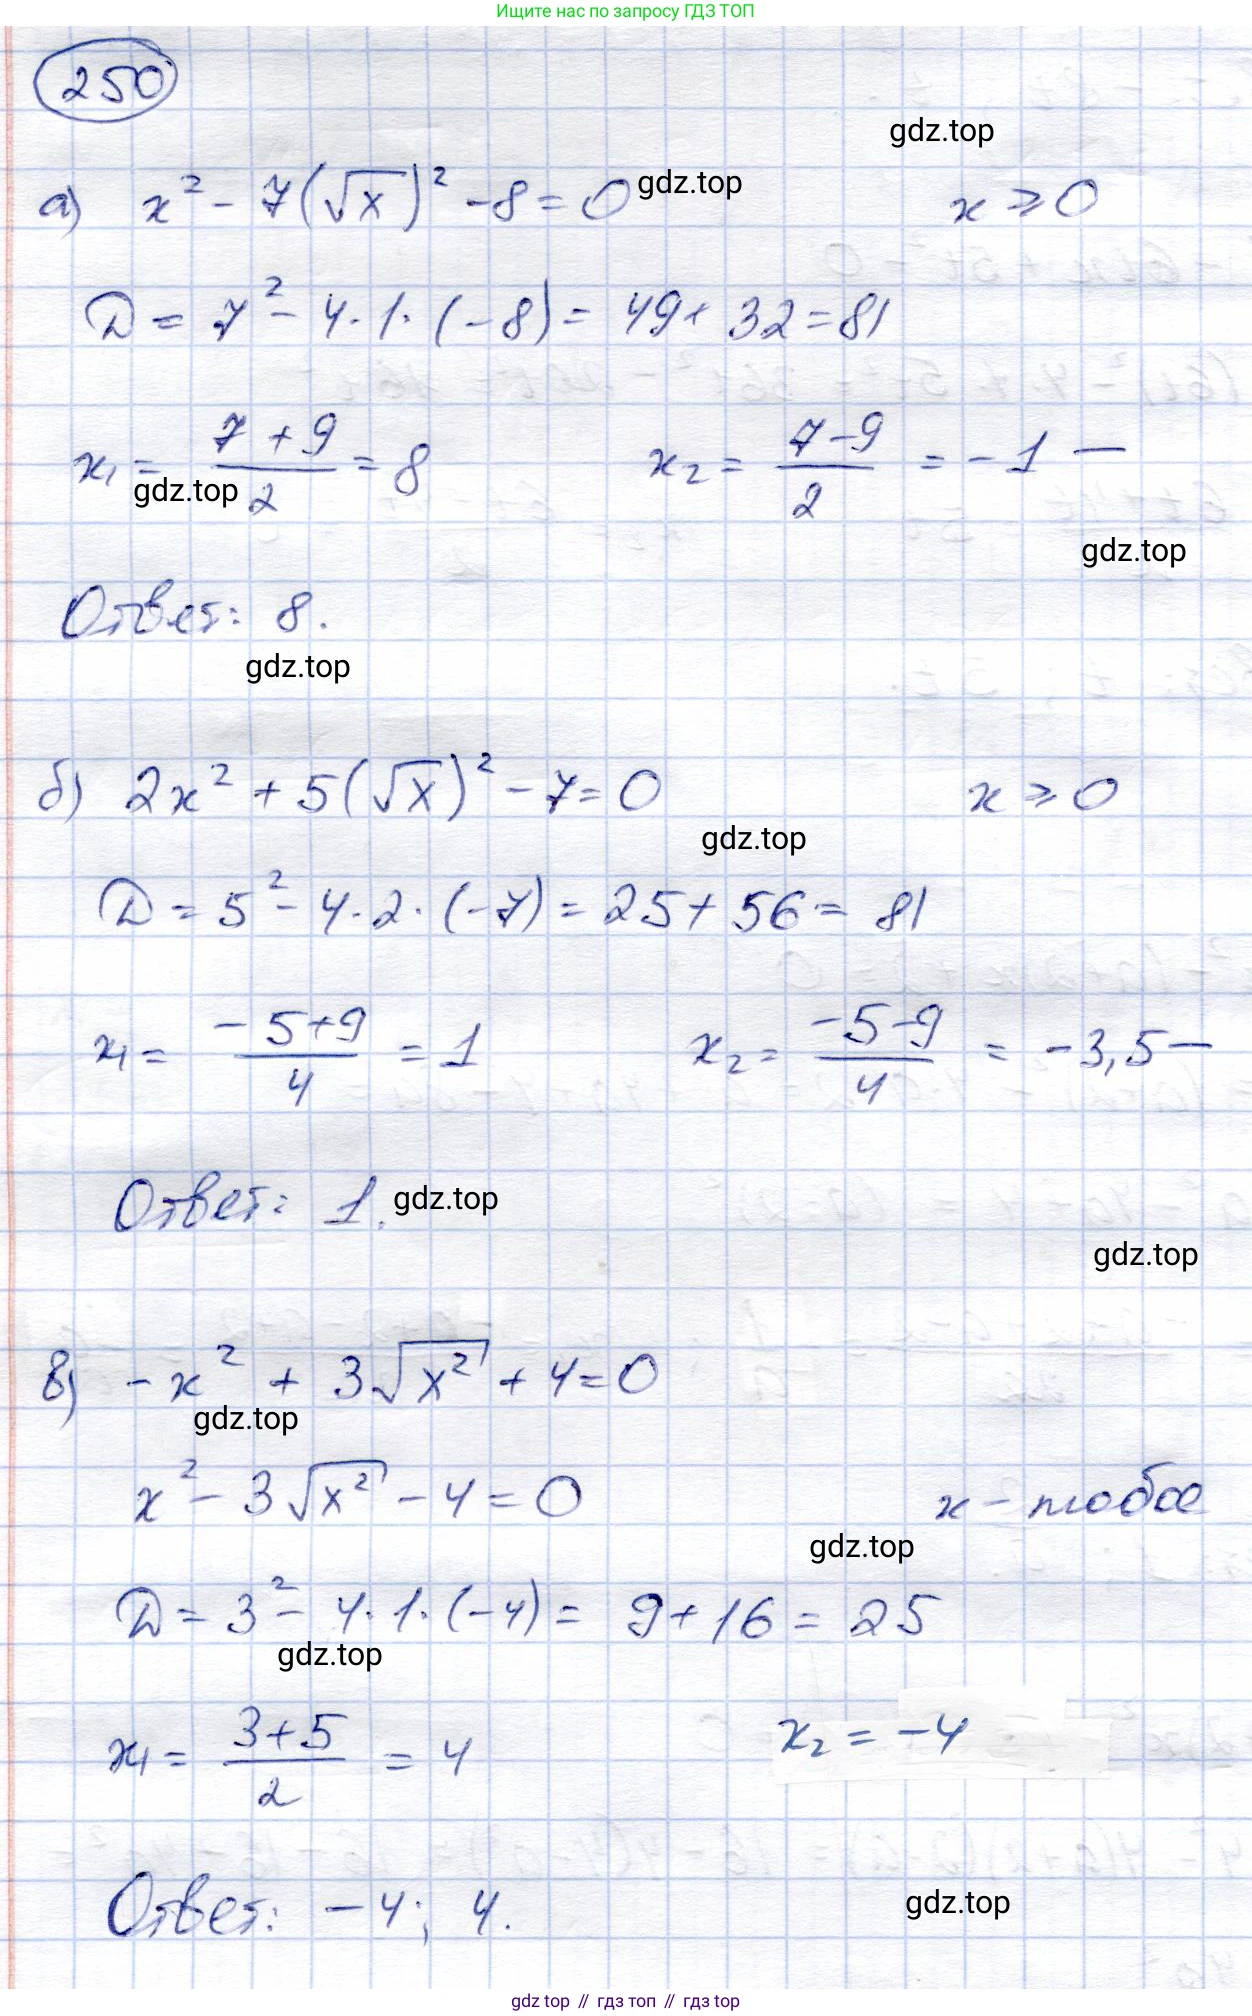 Ищите нас по запросу ГДЗ ТОП
250
gdz.top
а) x² - 7(√x)² - 8 = 0 gdz.top x ⩾ 0
D = 7² - 4·1·(-8) = 49 + 32 = 81
x₁ = (7+9)/2 = 8 x₂ = (7-9)/2 = -1 —
gdz.top
gdz.top
Ответ: 8.
gdz.top
б) 2x² + 5(√x)² - 7 = 0 x ⩾ 0
gdz.top
D = 5² - 4·2·(-7) = 25 + 56 = 81
x₁ = (-5+9)/4 = 1 x₂ = (-5-9)/4 = -3,5 —
Ответ: 1. gdz.top
gdz.top
в) -x² + 3√x² + 4 = 0
gdz.top
x² - 3√x² - 4 = 0 x - любое
gdz.top
D = 3² - 4·1·(-4) = 9 + 16 = 25
gdz.top
x₁ = (3+5)/2 = 4 x₂ = -4
Ответ: -4; 4.
gdz.top
gdz top // гдз топ // гдз top